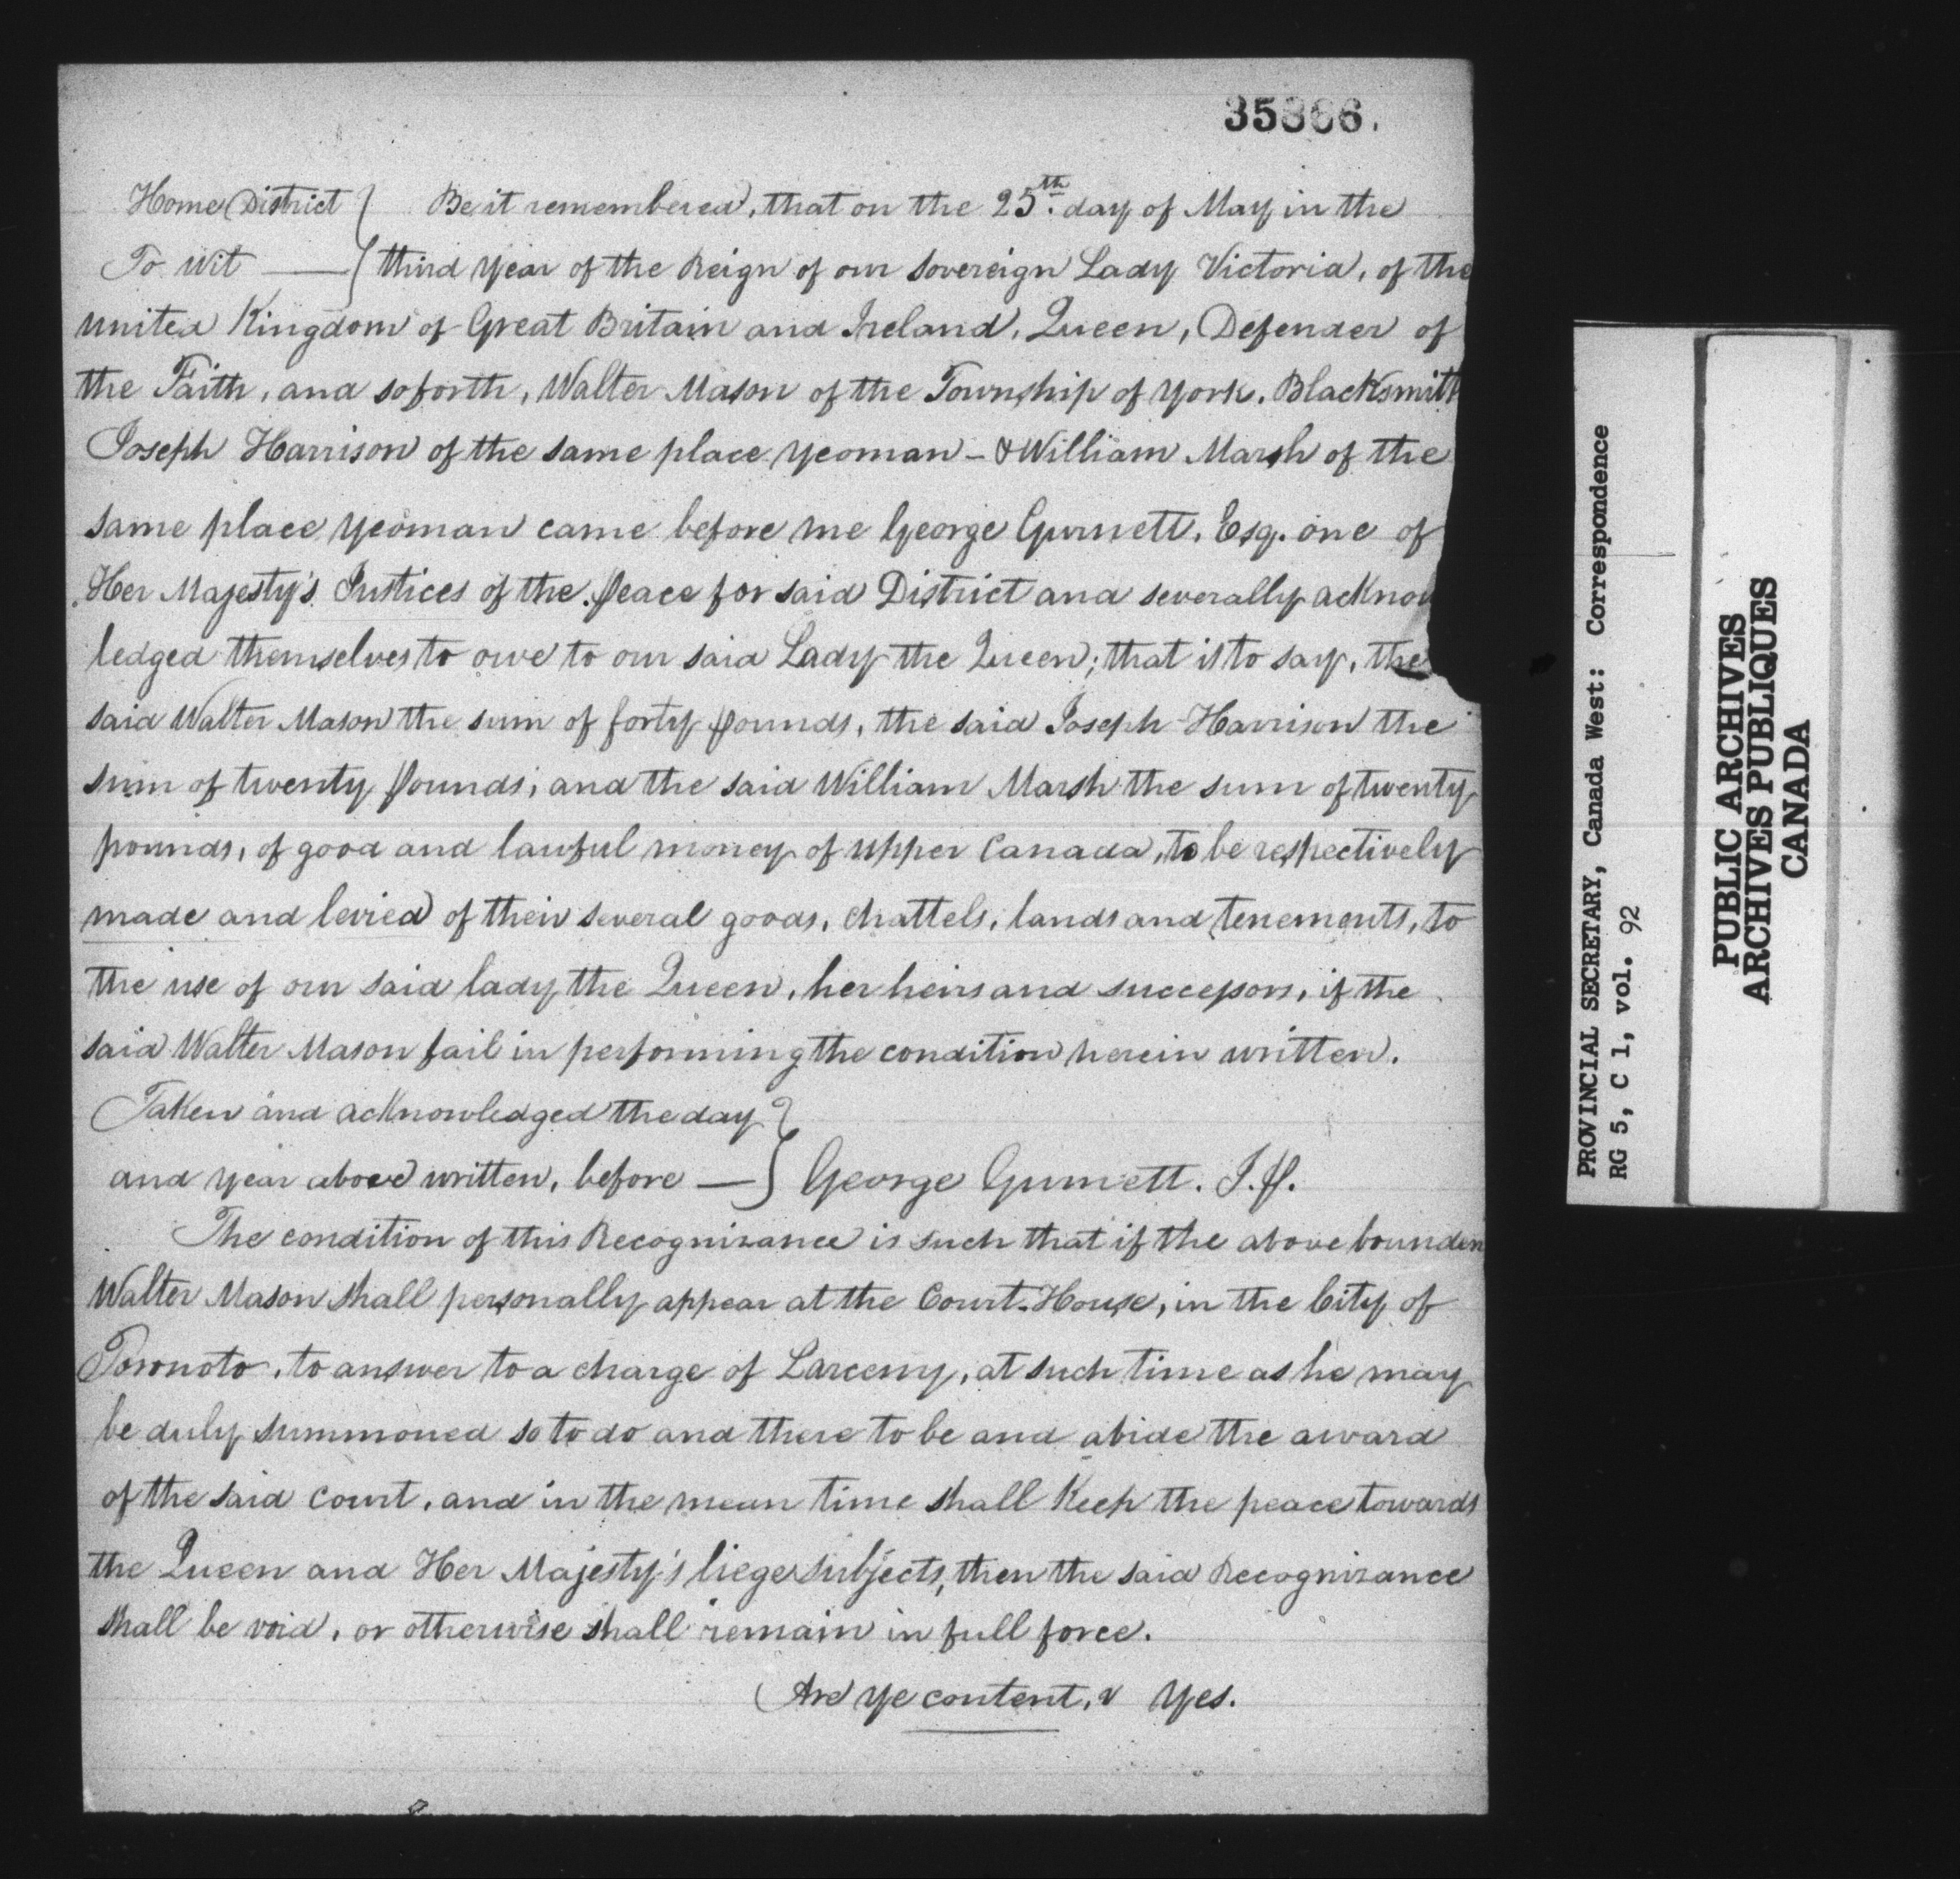 35866.
Home District } Be it remembered, that on the 25th. day of May in the
To Wit — } third Year of the Reign of our Sovereign Lady Victoria, of the
united Kingdom of Great Britain and Ireland, Queen, Defender of
the Faith, and so forth, Walter Mason of the Township of York, Blacksmith
Joseph Harrison of the same place yeoman - & William Marsh of the
same place yeoman came before me George Gurnett, Esq. one of
Her Majesty's Justices of the Peace for said District and severally acknow
ledged themselves to owe to our said Lady the Queen; that is to say, the
said Walter Mason the sum of forty Pounds, the said Joseph Harrison the
sum of twenty Pounds, and the said William Marsh the sum of twenty
pounds, of good and lawful money of upper Canada, to be respectively
made and levied of their several goods, chattels, lands and tenements, to
the use of our said lady the Queen, her heirs and successors, if the
said Walter Mason fail in performing the condition herein written.
Taken and acknowledged the day }
and year above written, before — } George Gurnett. J.P.
The condition of this Recognizance is such that if the above bounden
Walter Mason shall personally appear at the Court-House, in the City of
Toronoto, to answer to a charge of Larceny, at such time as he may
be duly summoned so to do and there to be and abide the award
of the said court, and in the mean time shall keep the peace towards
the Queen and Her Majesty's liege subjects, then the said Recognizance
shall be void, or otherwise shall remain in full force.
Are ye content, & Yes.
PROVINCIAL SECRETARY, Canada West: Correspondence
RG 5, C 1, vol. 92
PUBLIC ARCHIVES
ARCHIVES PUBLIQUES
CANADA